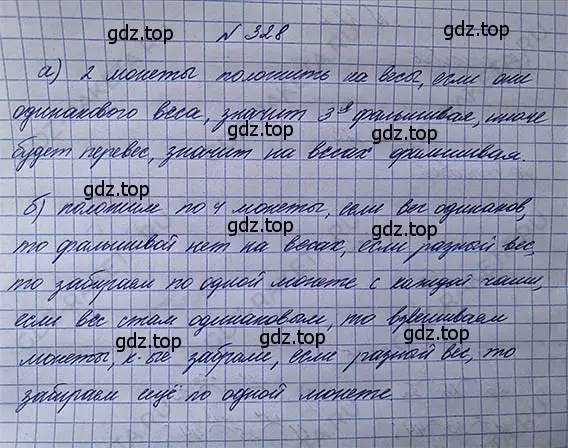 gdz.top
№ 328
а) 2 монеты положить на весы, если они
gdz.top
одинакового веса, значит 3я фальшивая, иначе
gdz.top
будет перевес, значит на весах фальшивая.
gdz.top
б) положим по 4 монеты, если вес одинаков,
gdz.top
то фальшивой нет на весах, если разной вес,
gdz.top
то забираем по одной монете с каждой чаши,
gdz.top
если вес стал одинаковым, то взвешиваем
gdz.top
монеты, к-ые забрали, если разной вес, то
gdz.top
забираем ещё по одной монете
gdz.top